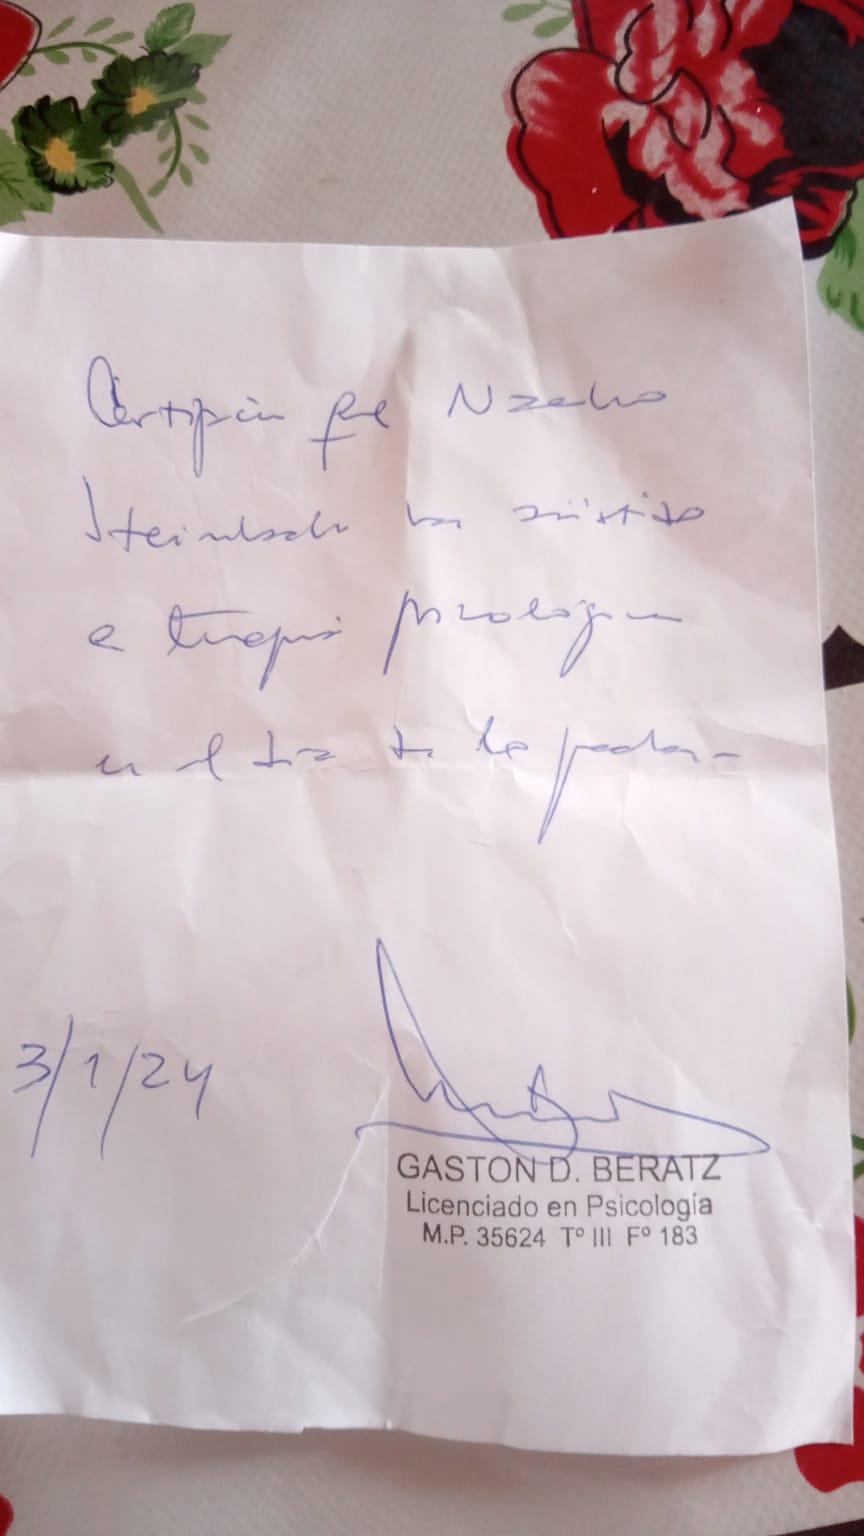 Certifico que Nzaho
Steinbach ha asistido
a terapia psicológica
en el día de la fecha.-
3/1/24
GASTON D. BERATZ
Licenciado en Psicología
M.P. 35624 Tº III Fº 183